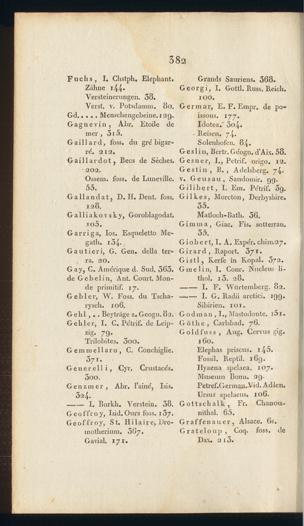 382
Fuchs, I. Chstph. Elephant.
Zähne 144.
Versteinerungen. 38.
Verst. v. Potsdamm. 80.
Gd..... Menschengebeine. 129.
Gagnevin, Abr. Etoile de
mer, 315.
Gaillard, foss. du gré bigar-
ré. 212.
Gaillardot, Becs de Sèches.
202.
Ossem. foss. de Luneville.
55.
Gallandat, D. H. Dent. foss.
128.
Galliakovsky, Goroblagodat.
103.
Garriga, Ios. Esqueletto Me-
gath. 134.
Gautieri, G. Gen. della ter-
ra. 20.
Gay, C. Amérique d. Sud, 363.
de Gebelin, Ant. Court. Mon-
de primitif. 17.
Gebler, W. Foss. du Tscha-
rysch. 106.
Gehl,.. Beyträge a. Geogn. 82.
Gehler, I. C. Pétrif. de Leip-
zig. 79.
Trilobites. 300.
Gemmellaro, C. Conchiglie.
371.
Generelli, Cyr. Crustacés.
300.
Gensmer, Abr. l'ainé, Isis.
324.
—— I. Burkh. Verstein. 38.
Geoffroy, Isid. Ours foss. 137.
Geoffroy, St. Hilaire, Dro-
motherium. 367.
Gavial. 171.
Grands Sauriens. 368.
Georgi, I. Gottl. Russ. Reich.
100.
Germar, E. F. Empr. de po-
issons. 177.
Idotea. 304.
Reisen. 74.
Solenhofen. 84.
Geslin, Bertr. Géogn. d'Aix. 58.
Gesner, I., Petrif. origo. 12.
Gestin, B., Adelsberg. 74.
v. Geusau, Sandomir. 99.
Gilibert, I. Em. Pétrif. 59.
Gilkes, Moreton, Derbyshire.
35.
Matloch-Bath. 36.
Gimma, Giac. Fis. sotterran.
55.
Giobert, I. A. Expér. chim. 27.
Girard, Raport. 371.
Gistl, Kerfe in Kopal. 372.
Gmelin, I. Conr. Nucleus li-
thol. 13. 28.
—— I. F. Würtemberg. 82.
—— I. G. Radii arctici. 199.
Sibirien. 101.
Godman, I., Mastodonte. 151.
Göthe, Carlsbad. 76.
Goldfuss, Aug. Cervus gig.
160.
Elephas priscus. 145.
Fossil. Reptil. 169.
Hyaena spelaea. 107.
Museum Bonn. 29.
Petref. German. Vid. Adden.
Ursus spelaeus. 106.
Gottschalk, Fr. Chanou-
nithal. 65.
Graffenauer, Alsace. 61.
Grateloup, Coq. foss. de
Dax. 213.